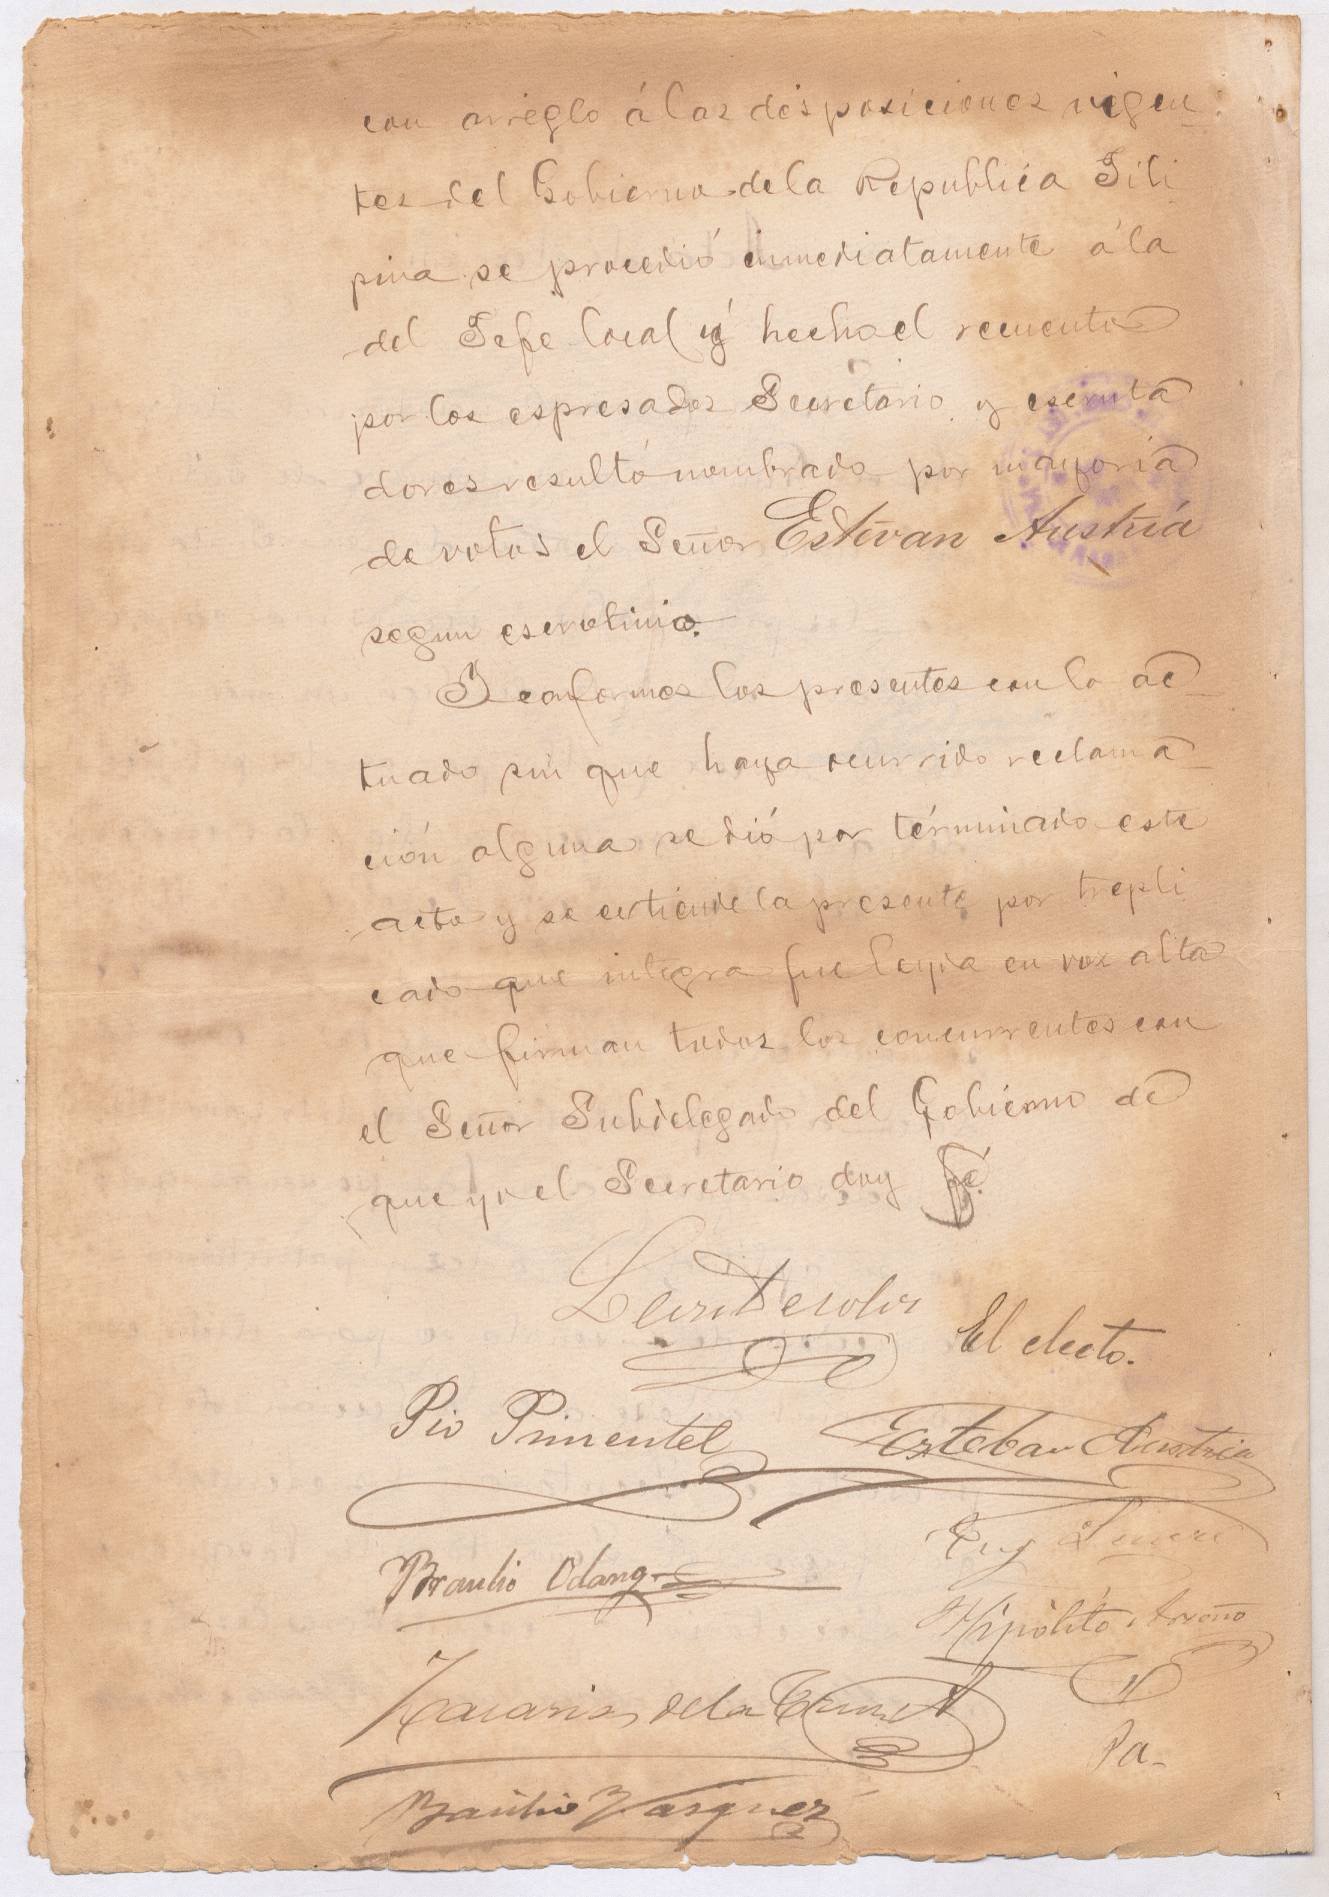 con arreglo á las disposiciones vigen_
tes del Gobierno de la Republica Fili
pina se procedió inmediatamente á la
del Jefe local y hecho el recuento
por los espresados Secretario y escruta
dores resultó nombrado por mayoria
de votos el Señor Estevan Austria
segun escrutinio.
Y conformes los presentes con lo ac_
tuado sin que haya ocurrido reclama_
ción alguna se dió por terminado este
acto y se extiende la presente por tripli
cado que integra fue leyda en voz alta
que firman todos los concurrentes con
el Señor Subdelegado del Gobierno de
que yo el Secretario doy fé.
El electo.
Pio Pimentel Esteban Austria
Braulio Odang
Hipólito
Zacarias de la Cruz
Pa-
Basilio Vasquez